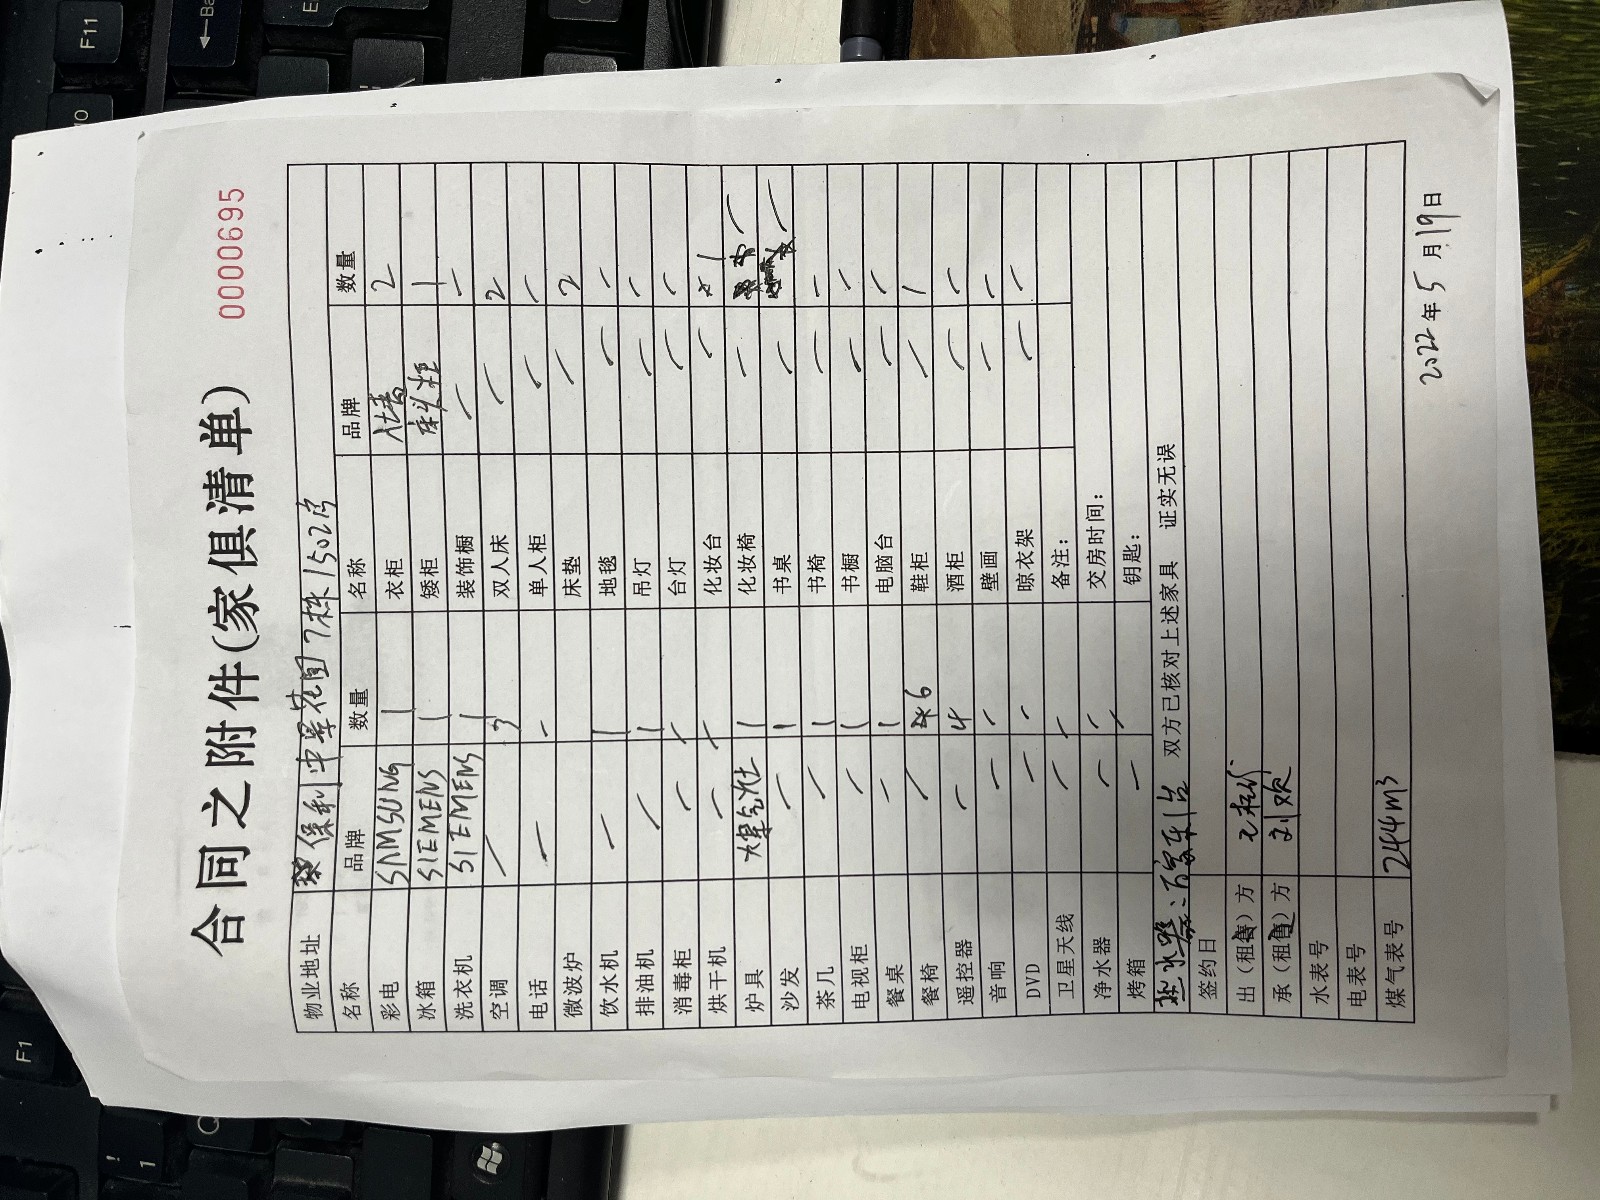 合同之附件(家俱清单)
0000695
物业地址 保利中景花园7栋1502房
名称 品牌 数量 名称 品牌 数量
彩电 SAMSUNG 1 衣柜 2
冰箱 SIEMENS 1 矮柜 床头柜 1
洗衣机 SIEMENS 1 装饰橱 / /
空调 / 3 双人床 / 2
电话 / - 单人柜 / /
微波炉 床垫 / 2
饮水机 / 1 地毯 / /
排油机 / 1 吊灯 / /
消毒柜 / / 台灯 / /
烘干机 / / 化妆台 / 1
炉具 煤气灶 1 化妆椅 / /
沙发 / 1 书桌 / /
茶几 / 1 书椅 / /
电视柜 / 1 书橱 / /
餐桌 / 1 电脑台 / /
餐椅 / 6 鞋柜 / /
遥控器 / 4 酒柜 / /
音响 / / 壁画 / /
DVD / / 晾衣架 / /
卫星天线 / / 备注：
净水器 / / 交房时间：
烤箱 / / 钥匙：
双方已核对上述家具 证实无误
签约日
出（租售）方
承（租售）方 刘欢
水表号
电表号
煤气表号 244m³
2022年5月19日